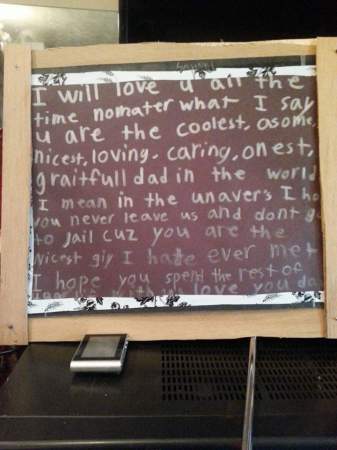 I will love u all the
time nomater what I say
u are the coolest, asome,
nicest, loving, caring, onest,
graitfull dad in the world
I mean in the unaver's I ho
you never leave us and dont go
to jail cuz you are the
nicest giy I hate ever met
I hope you spend the rest of
with us love you